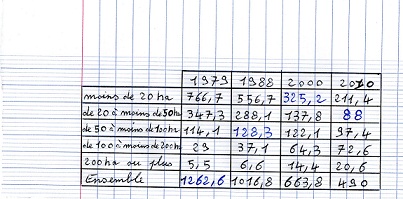 1979 1988 2000 2010
moins de 20 ha 766,7 556,7 325,2 211,4
de 20 à moins de 50ha 347,3 288,1 137,8 88
de 50 à moins de 100ha 114,1 128,3 122,1 97,4
de 100 à moins de 200ha 29 37,1 64,3 72,6
200ha ou plus 5,5 6,6 14,4 20,6
Ensemble 1262,6 1016,8 663,8 490